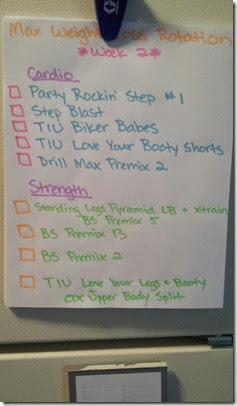 Max Weight Loss Rotation
*Week 2*
Cardio
Party Rockin' Step #1
Step Blast
TIU Biker Babes
TIU Love Your Booty Shorts
Drill Max Premix 2
Strength
Standing Legs Pyramid LB + Xtrain
BS Premix 5
BS Premix 13
BS Premix 2
TIU Love Your Legs + Booty
Upper Body Split